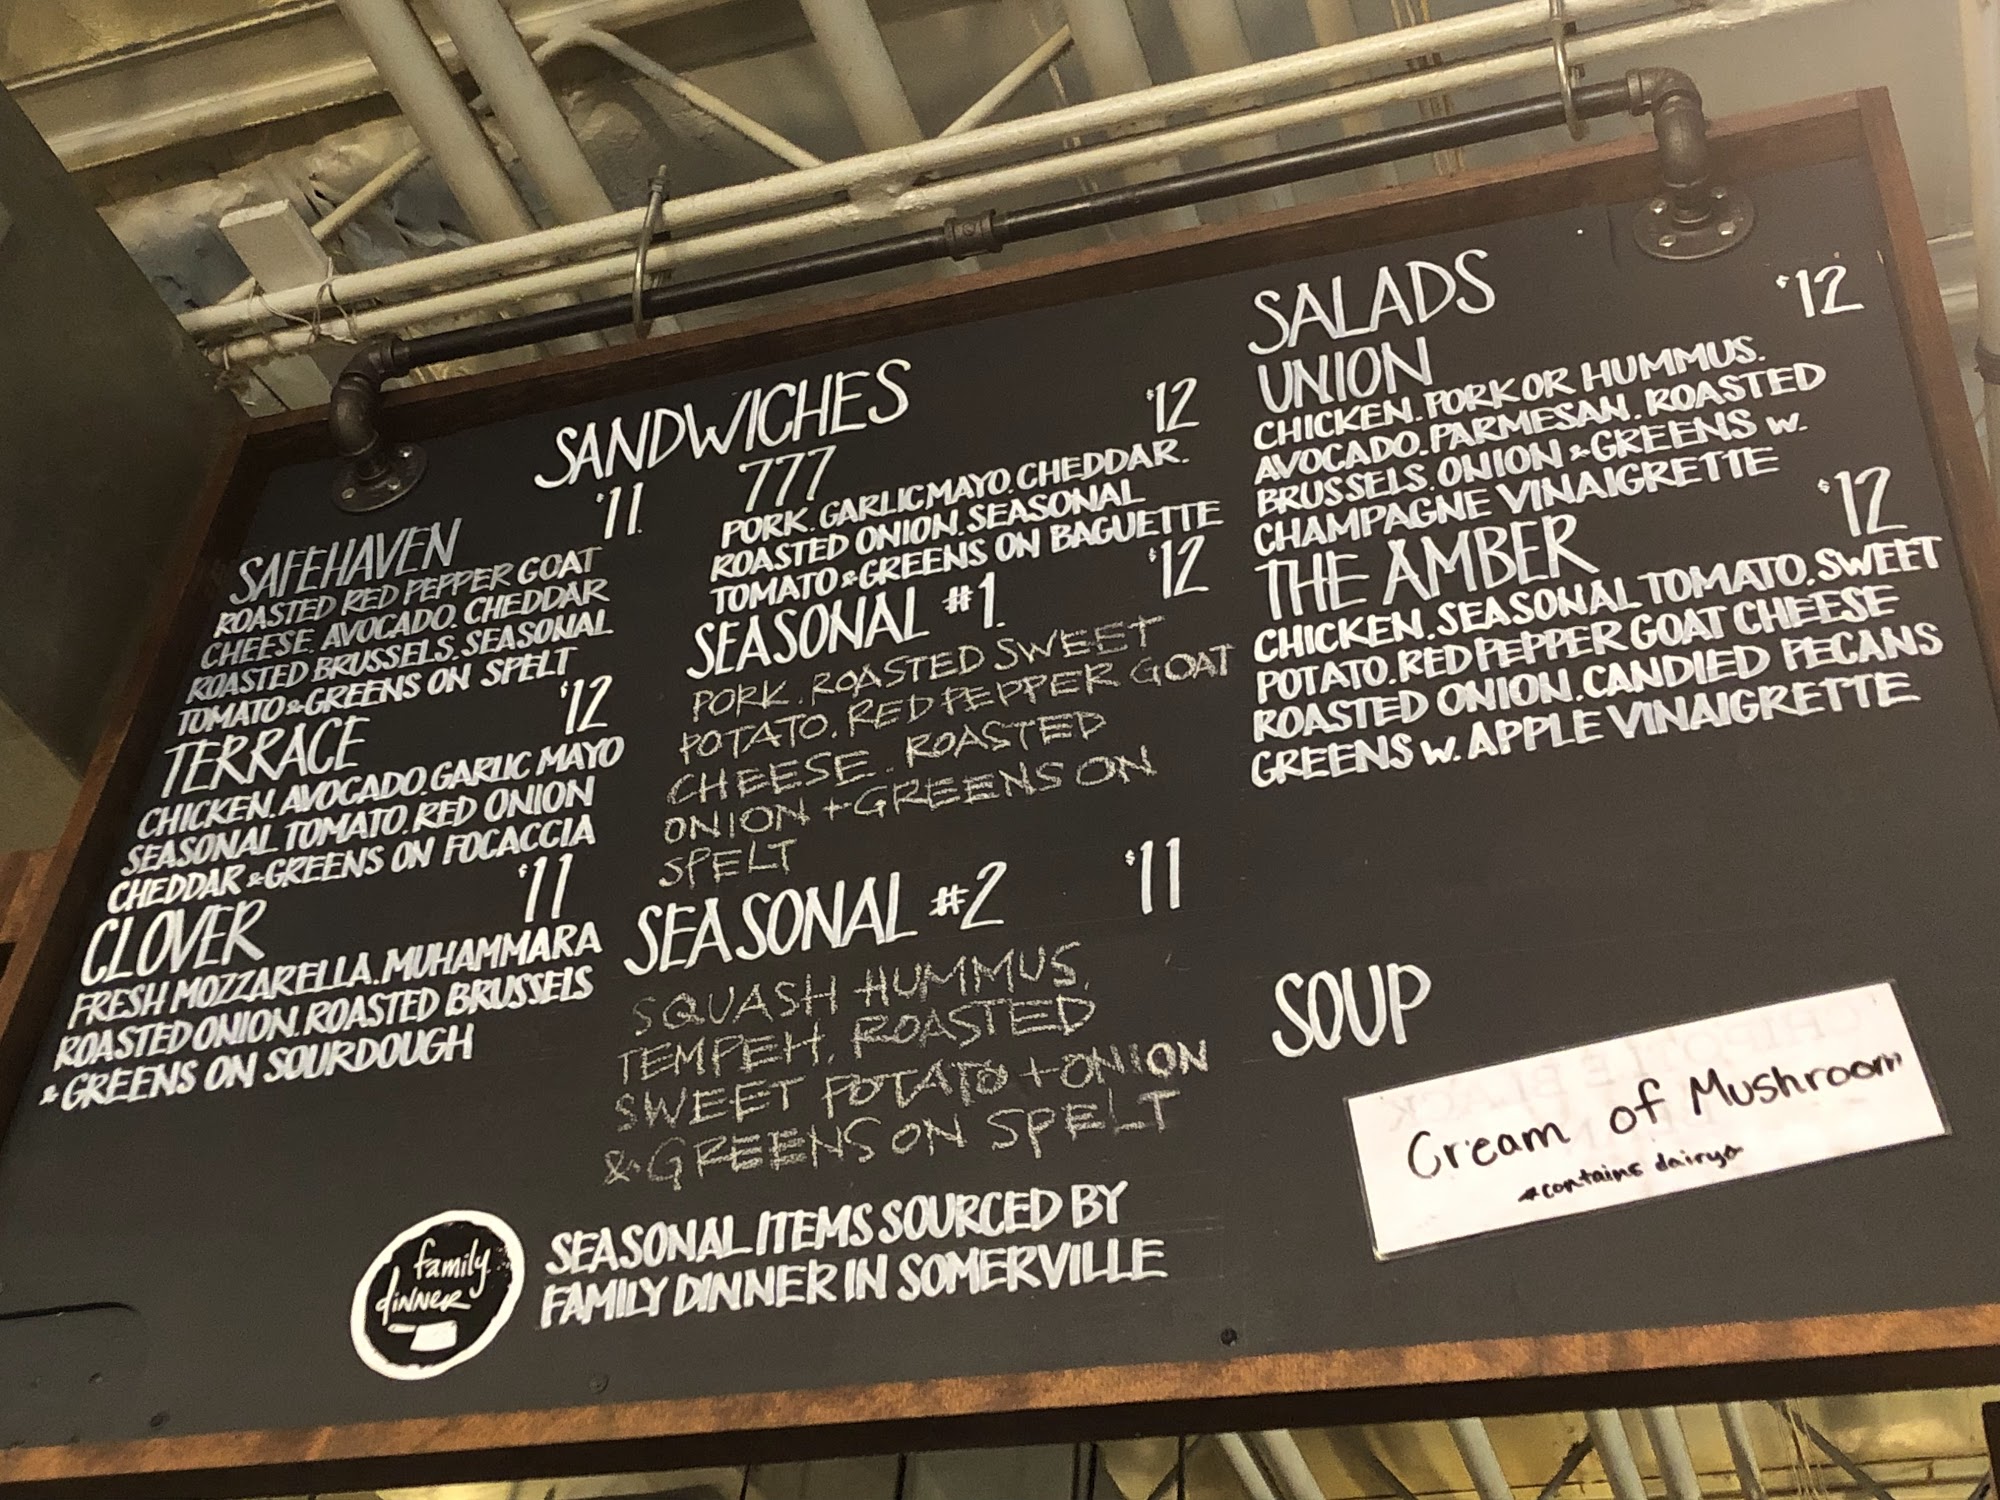 SANDWICHES
SAFEHAVEN $11
ROASTED RED PEPPER GOAT
CHEESE. AVOCADO. CHEDDAR
ROASTED BRUSSELS. SEASONAL
TOMATO & GREENS ON SPELT
TERRACE $12
CHICKEN. AVOCADO. GARLIC MAYO
SEASONAL TOMATO. RED ONION
CHEDDAR & GREENS ON FOCACCIA
CLOVER $11
FRESH MOZZARELLA. MUHAMMARA
ROASTED ONION. ROASTED BRUSSELS
& GREENS ON SOURDOUGH
777 $12
PORK. GARLIC MAYO. CHEDDAR.
ROASTED ONION. SEASONAL
TOMATO & GREENS ON BAGUETTE
SEASONAL #1. $12
PORK. ROASTED SWEET
POTATO. RED PEPPER GOAT
CHEESE. ROASTED
ONION + GREENS ON
SPELT
SEASONAL #2 $11
SQUASH HUMMUS,
TEMPEH, ROASTED
SWEET POTATO + ONION
& GREENS ON SPELT
family
dinner
SEASONAL ITEMS SOURCED BY
FAMILY DINNER IN SOMERVILLE
SALADS
UNION $12
CHICKEN. PORK OR HUMMUS.
AVOCADO. PARMESAN. ROASTED
BRUSSELS. ONION & GREENS W.
CHAMPAGNE VINAIGRETTE
THE AMBER $12
CHICKEN. SEASONAL TOMATO. SWEET
POTATO. RED PEPPER GOAT CHEESE
ROASTED ONION. CANDIED PECANS
GREENS W. APPLE VINAIGRETTE
SOUP
Cream of Mushroom
*contains dairy*